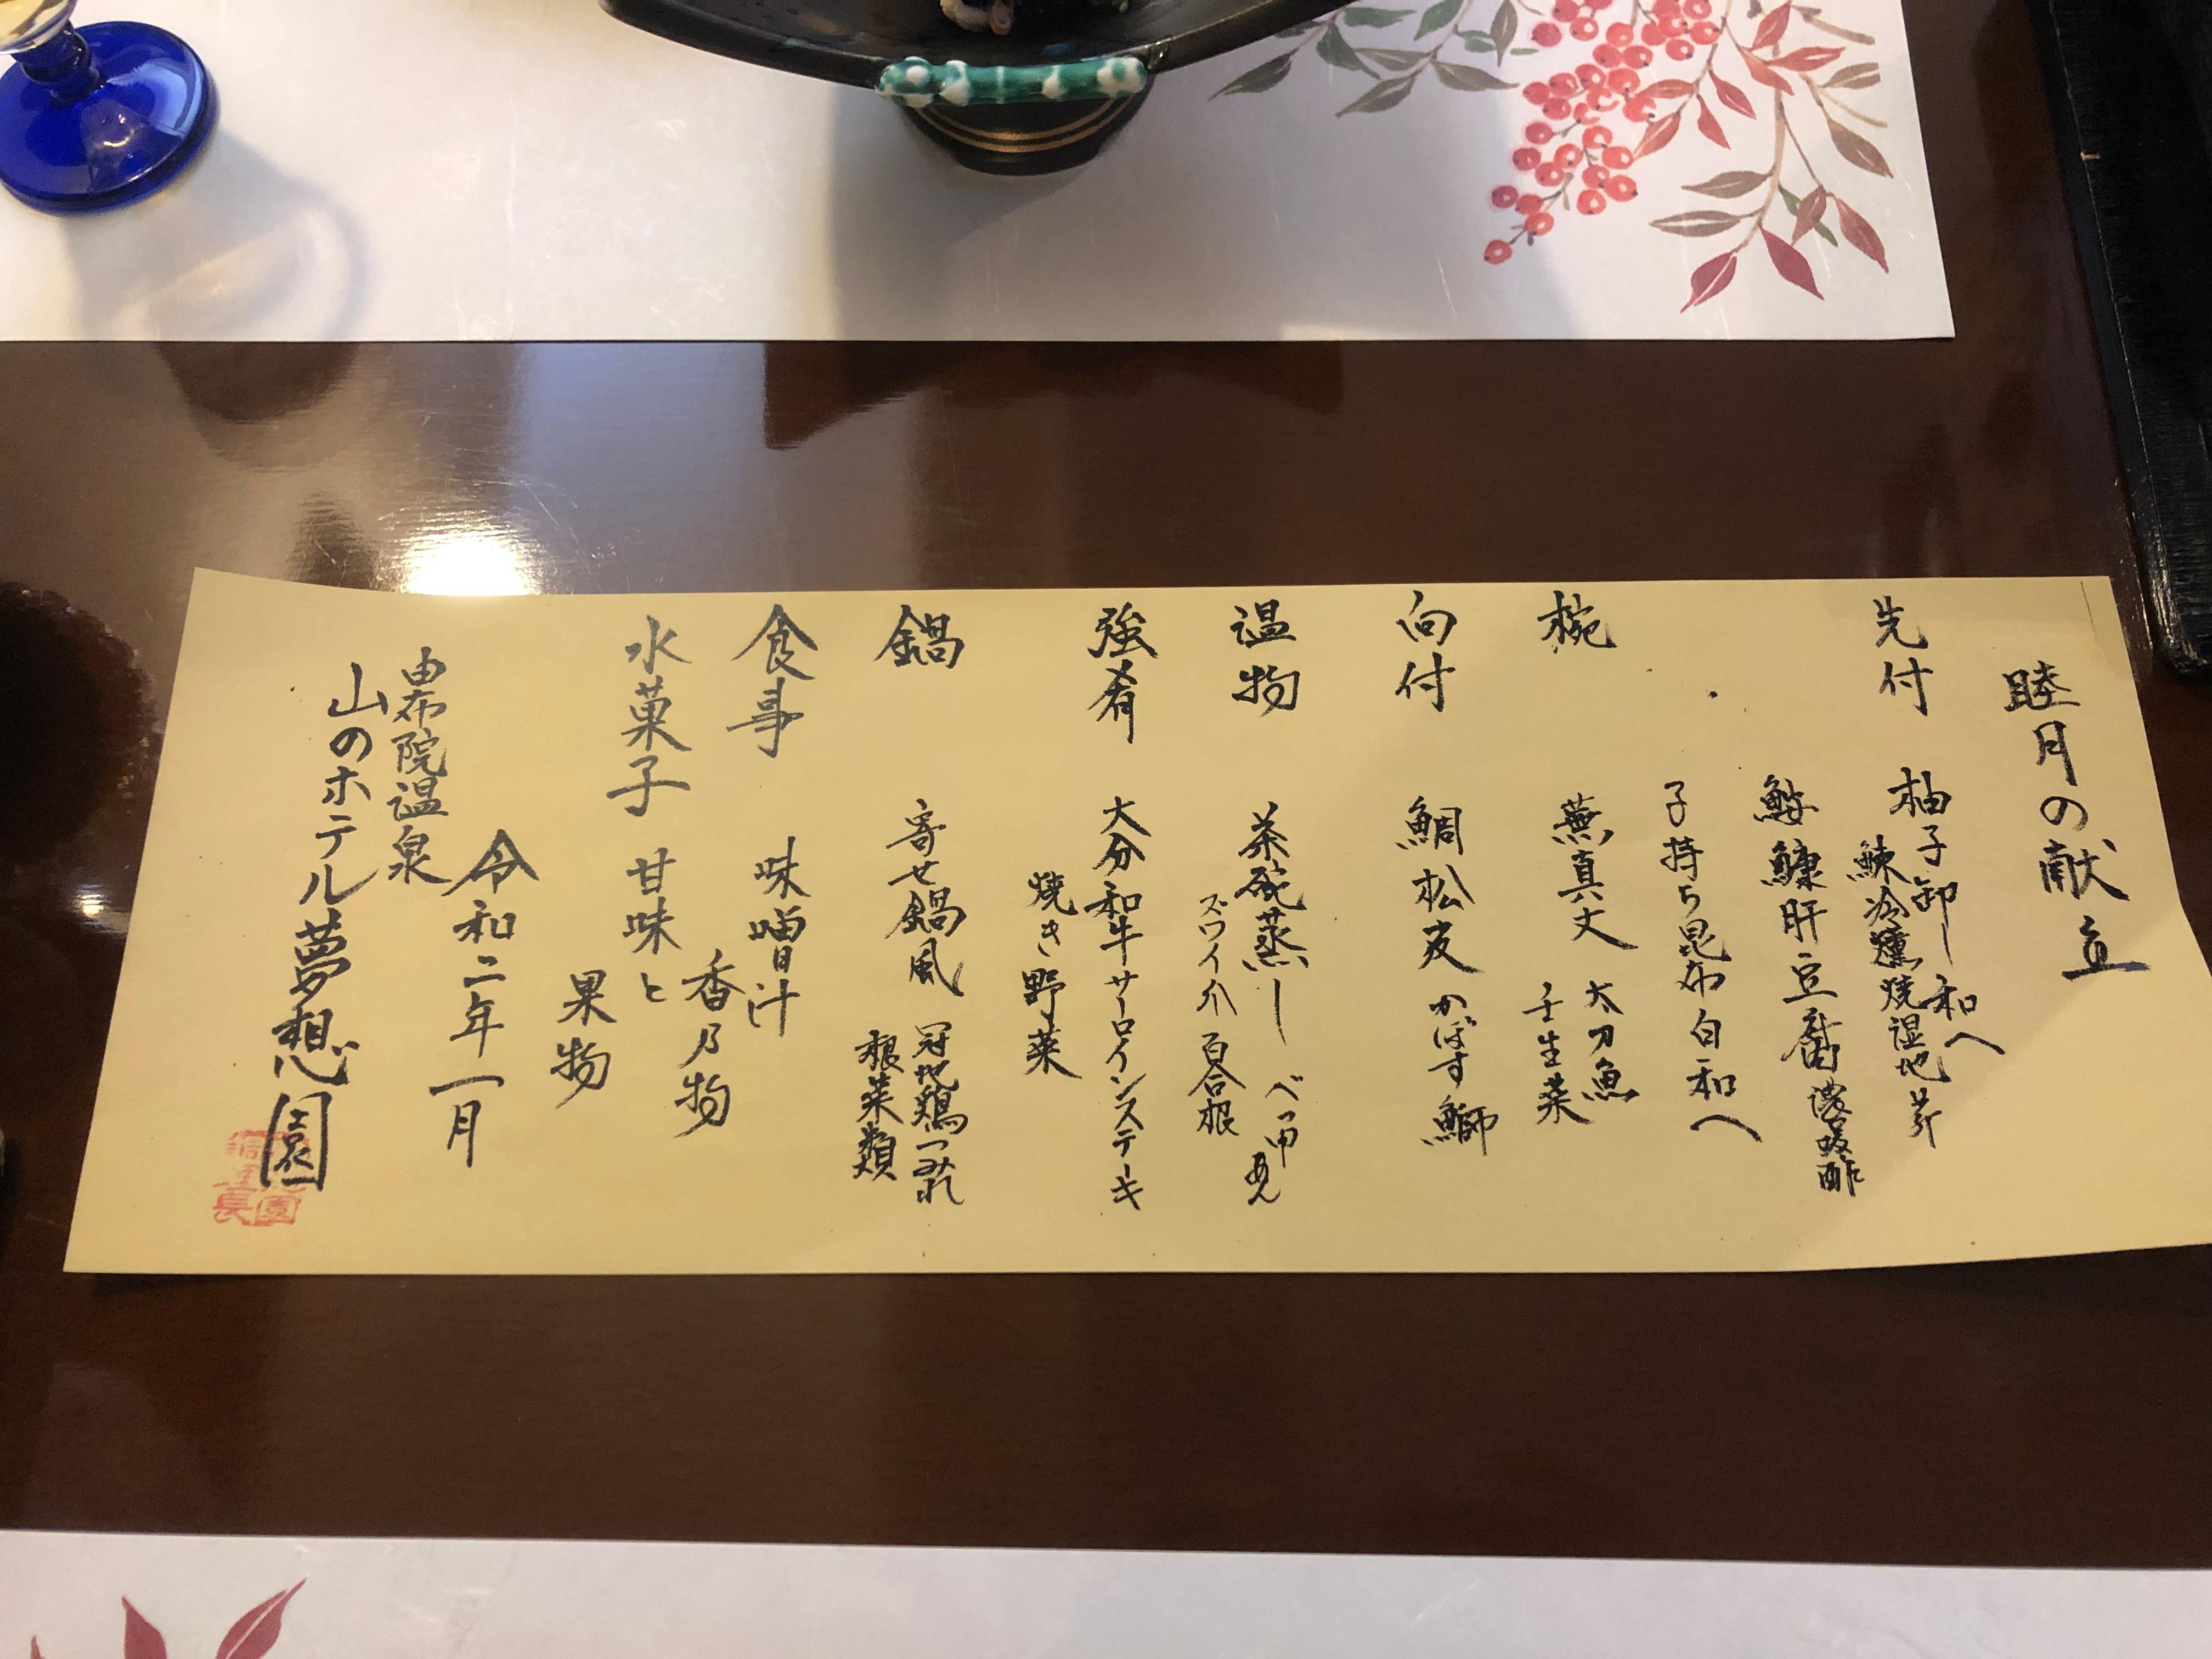 睦月の献立
先付 柚子卸し和へ
鰊冷燻 焼湿地 芥
鮟鱇肝豆腐
子持ち昆布白和へ
椀 蕪真丈 太刀魚
壬生菜
向付 鯛松皮 かぼす鰤
温物 茶碗蒸し べっ甲あん
ズワイ爪 百合根
強肴 大分和牛サーロインステーキ
焼き野菜
鍋 寄せ鍋風 冠地鶏つみれ
根菜類
食事 味噌汁
香乃物
水菓子 甘味と
果物
令和二年一月
由布院温泉
山のホテル夢想園